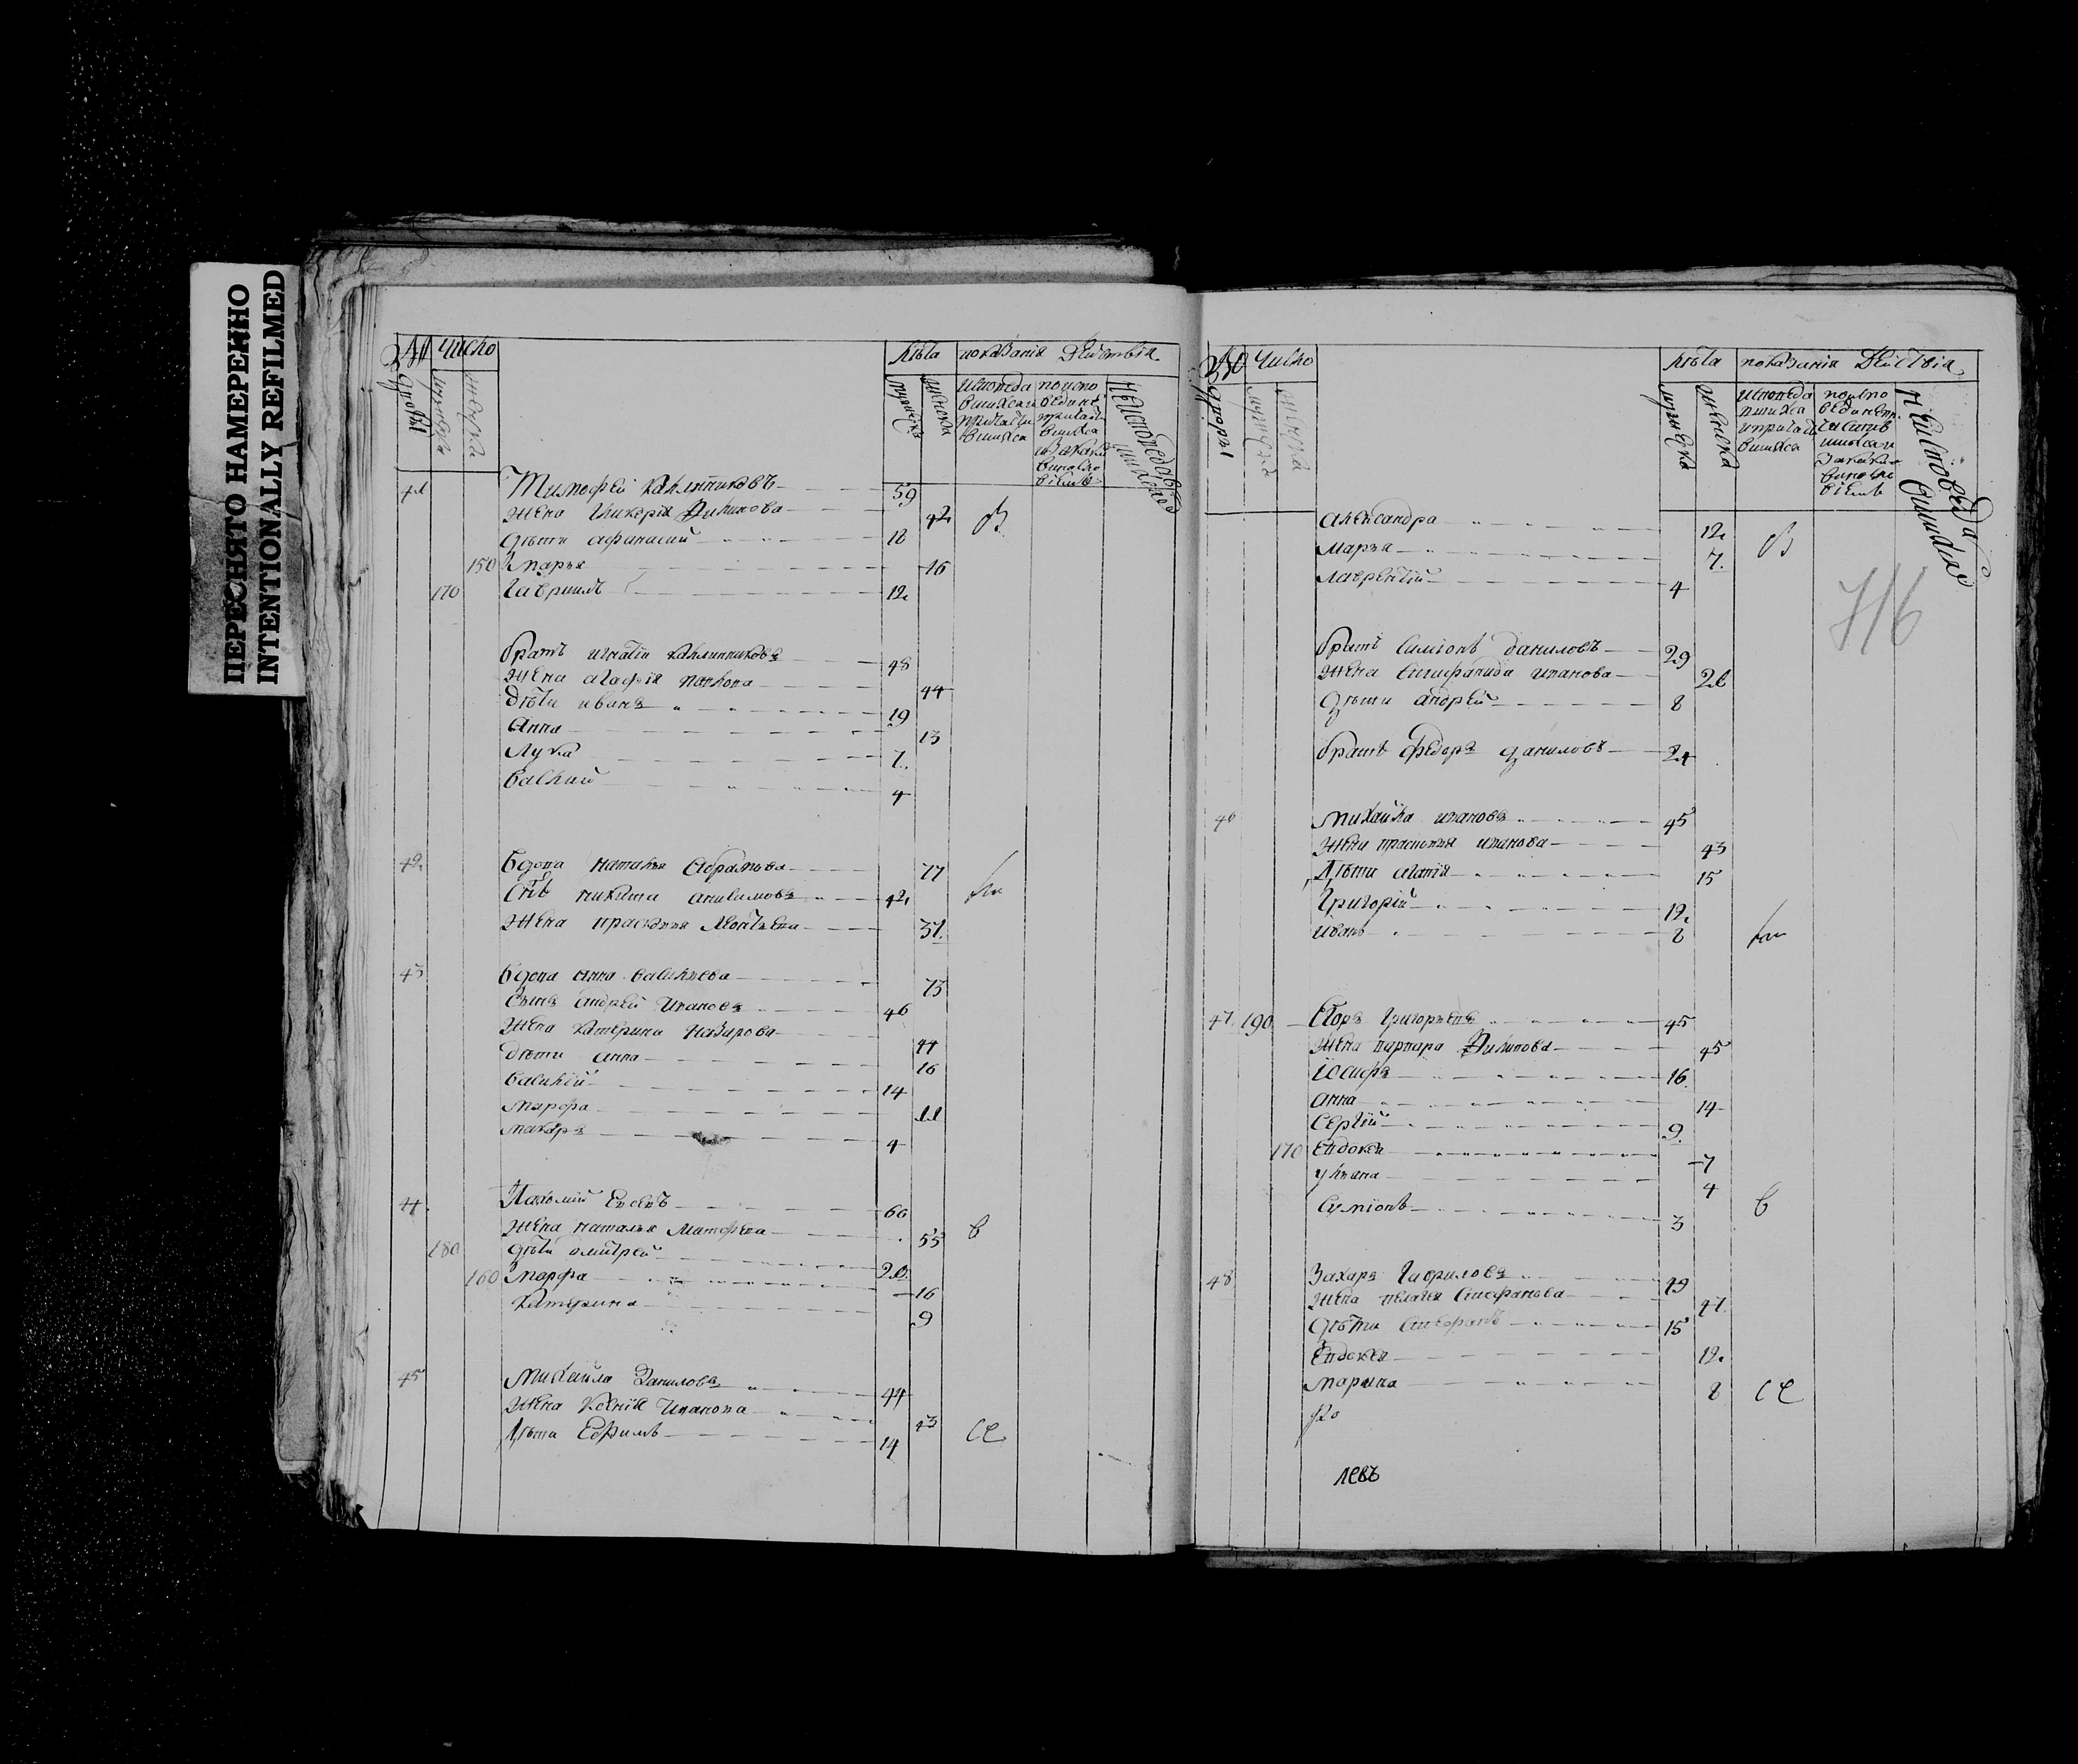 ПЕРЕСНЯТО НАМЕРЕННО
INTENTIONALLY REFILMED
Число
Лѣта показанія Дѣиствія
41 Тимофей Калинниковъ 59
жена Гликерія Филипова 42
дѣти афанасий 18
150 Марья 16
170 Гавриилъ 12
братъ игнатіи Калинниковъ 48
жена агафія 44
дѣти иванъ 19
Анна 13
Лука 7
Василий 4
42 Вдова наталья Абрамова 77
Снъ никита анисимовъ 42
жена прасковья Леонтьева 37
43 Вдова анна васильева 73
Сынъ андрей Ивановъ 46
жена катерина Назарова 44
дѣти анна 16
василій 14
марфа 11
макаръ 4
44 Пахомий Евсевъ 60
жена наталья Матфева 55
180 дѣти дмитрей 20
160 Марфа 16
Катерина 9
45 Михайла Даниловъ 44
жена Ксенія Иванова 43
дѣти Ефимъ 14
Число
Лѣта показанія Дѣйствія
александра 12
марья 7
лаврентій 4
716
братъ Симіонъ даниловъ 29
жена Степанида иванова 28
дѣти андрей 8
братъ федоръ даниловъ 24
46 Михайла ивановъ 45
жена прасковья иванова 43
Дѣти агафія 15
Григорій 12
иванъ 8
47 190 Егоръ Григорьевъ 45
жена варвара Филипова 45
Іосифъ 16
анна 14
Сергій 9
170 Евдокея 7
ульяна 4
Симіонъ 3
48 Захаръ Гавриловъ 49
жена пелагея Стефанова 47
дѣти Стефанъ 15
Евдокея 12
марина 8
левъ